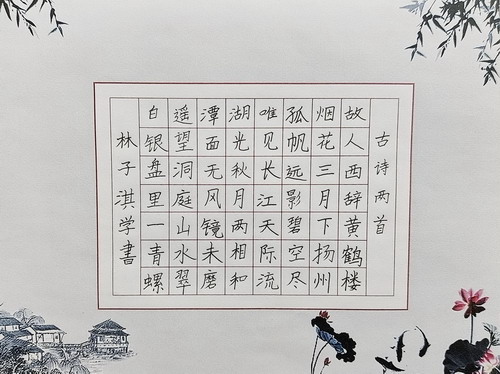 古诗两首
故人西辞黄鹤楼
烟花三月下扬州
孤帆远影碧空尽
唯见长江天际流
湖光秋月两相和
潭面无风镜未磨
遥望洞庭山水翠
白银盘里一青螺
林子淇学書